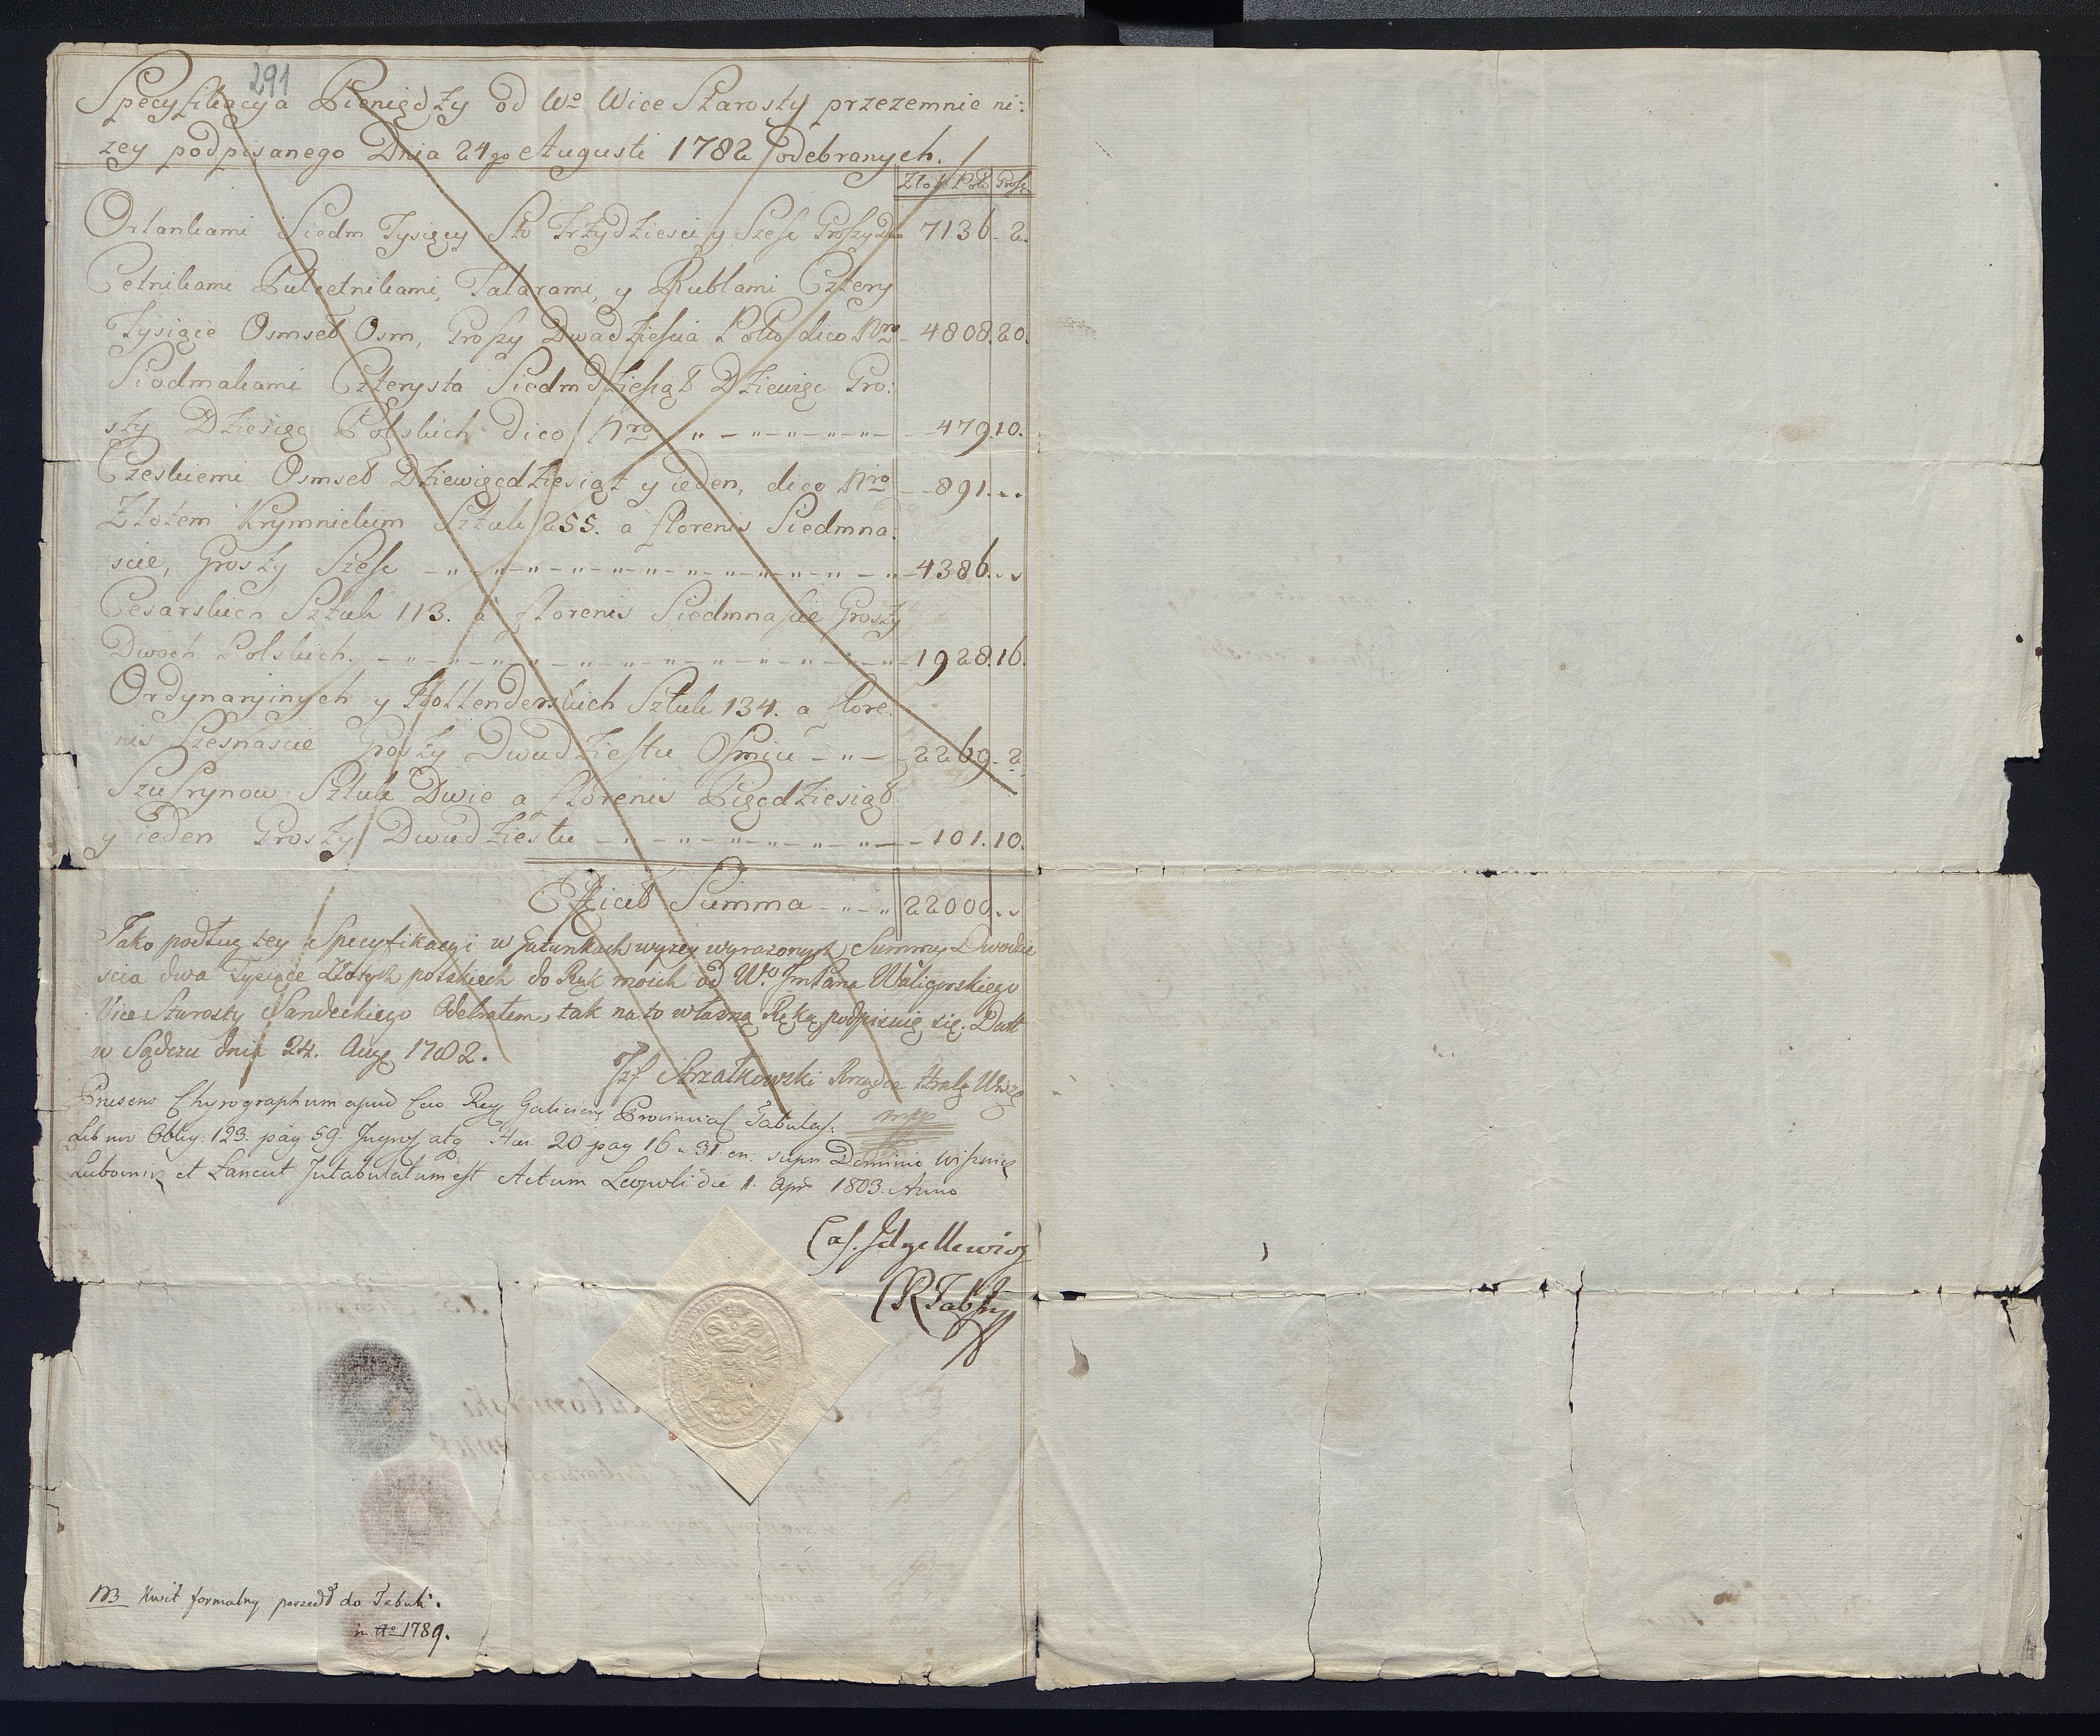 291
Specyfikacya Pieniędzy od Wo Wice Starosty przezemnie ni:
zey podpisanego Dnia 24go Augusti 1782 odebranych.
Złote Pol: Grosz
Orlankami Siedm Tysięcy Sto Trzydziesci y Szesc Groszy Dwa 7136. 2.
Cetnikami Pulcetnikami, Talarami, y Rublami Cztery
Tysiące Osmset Osm, Groszy Dwadziescia Polo dico Nro 4808.20.
Siodmakami Czterysta Siedmdziesiąt Dziewięc Gro:
szy Dziesięc Polskich dico Nro 479.10.
Czeskiemi Osmset Dziewięcdziesiąt y ieden, dico Nro 891...
Złotem Krymnickim Sztuk 255. a florenis Siedmna:
scie, Groszy Szesc 4386...
Cesarskich Sztuk 113. a florenis Siedmnascie Groszy
Dwoch Polskich. 1928.16.
Ordynaryinych y Hollenderskich Sztuk 134. a flore:
nis Szesnascie Groszy Dwudziestu Osmiu 2269. 2.
Szufrynow Sztuk Dwie a florenis Pięcdziesiąt
y ieden Groszy Dwudziestu 101.10.
Efficit Summa 22000...
Jako podług tey Specyfikacyi w Gatunkach wyzey wyrazonych Summy Dwadzie
scia dwa Tysiące Złotych polskich do Rąk moich od Wo. JmPana Waligorskiego
Vice Starosty Sandeckiego Odebrałem, tak na to własną Ręką podpisuię się. Datt
w Sądczu dnia 24. Aug 1782.
Jzf Strzałkowski Rządca Hrab Wisz
mpp
Praesens Chyrographum apud Caes Reg Galiciens Provincial Tabulas.
Lib nov Oblig: 123. pag 59. Ingross atq Haer 20 pag 16 n 31 on: supra Dominio Wisznicz
Lubomirz et Lancut Intabulatum est Actum Leopoli die 1. Apr 1803. Anno
Cas. Jagellewicz
RTabst
NB Kwit formalny poszedł do Tabuli.
in Ao 1789.